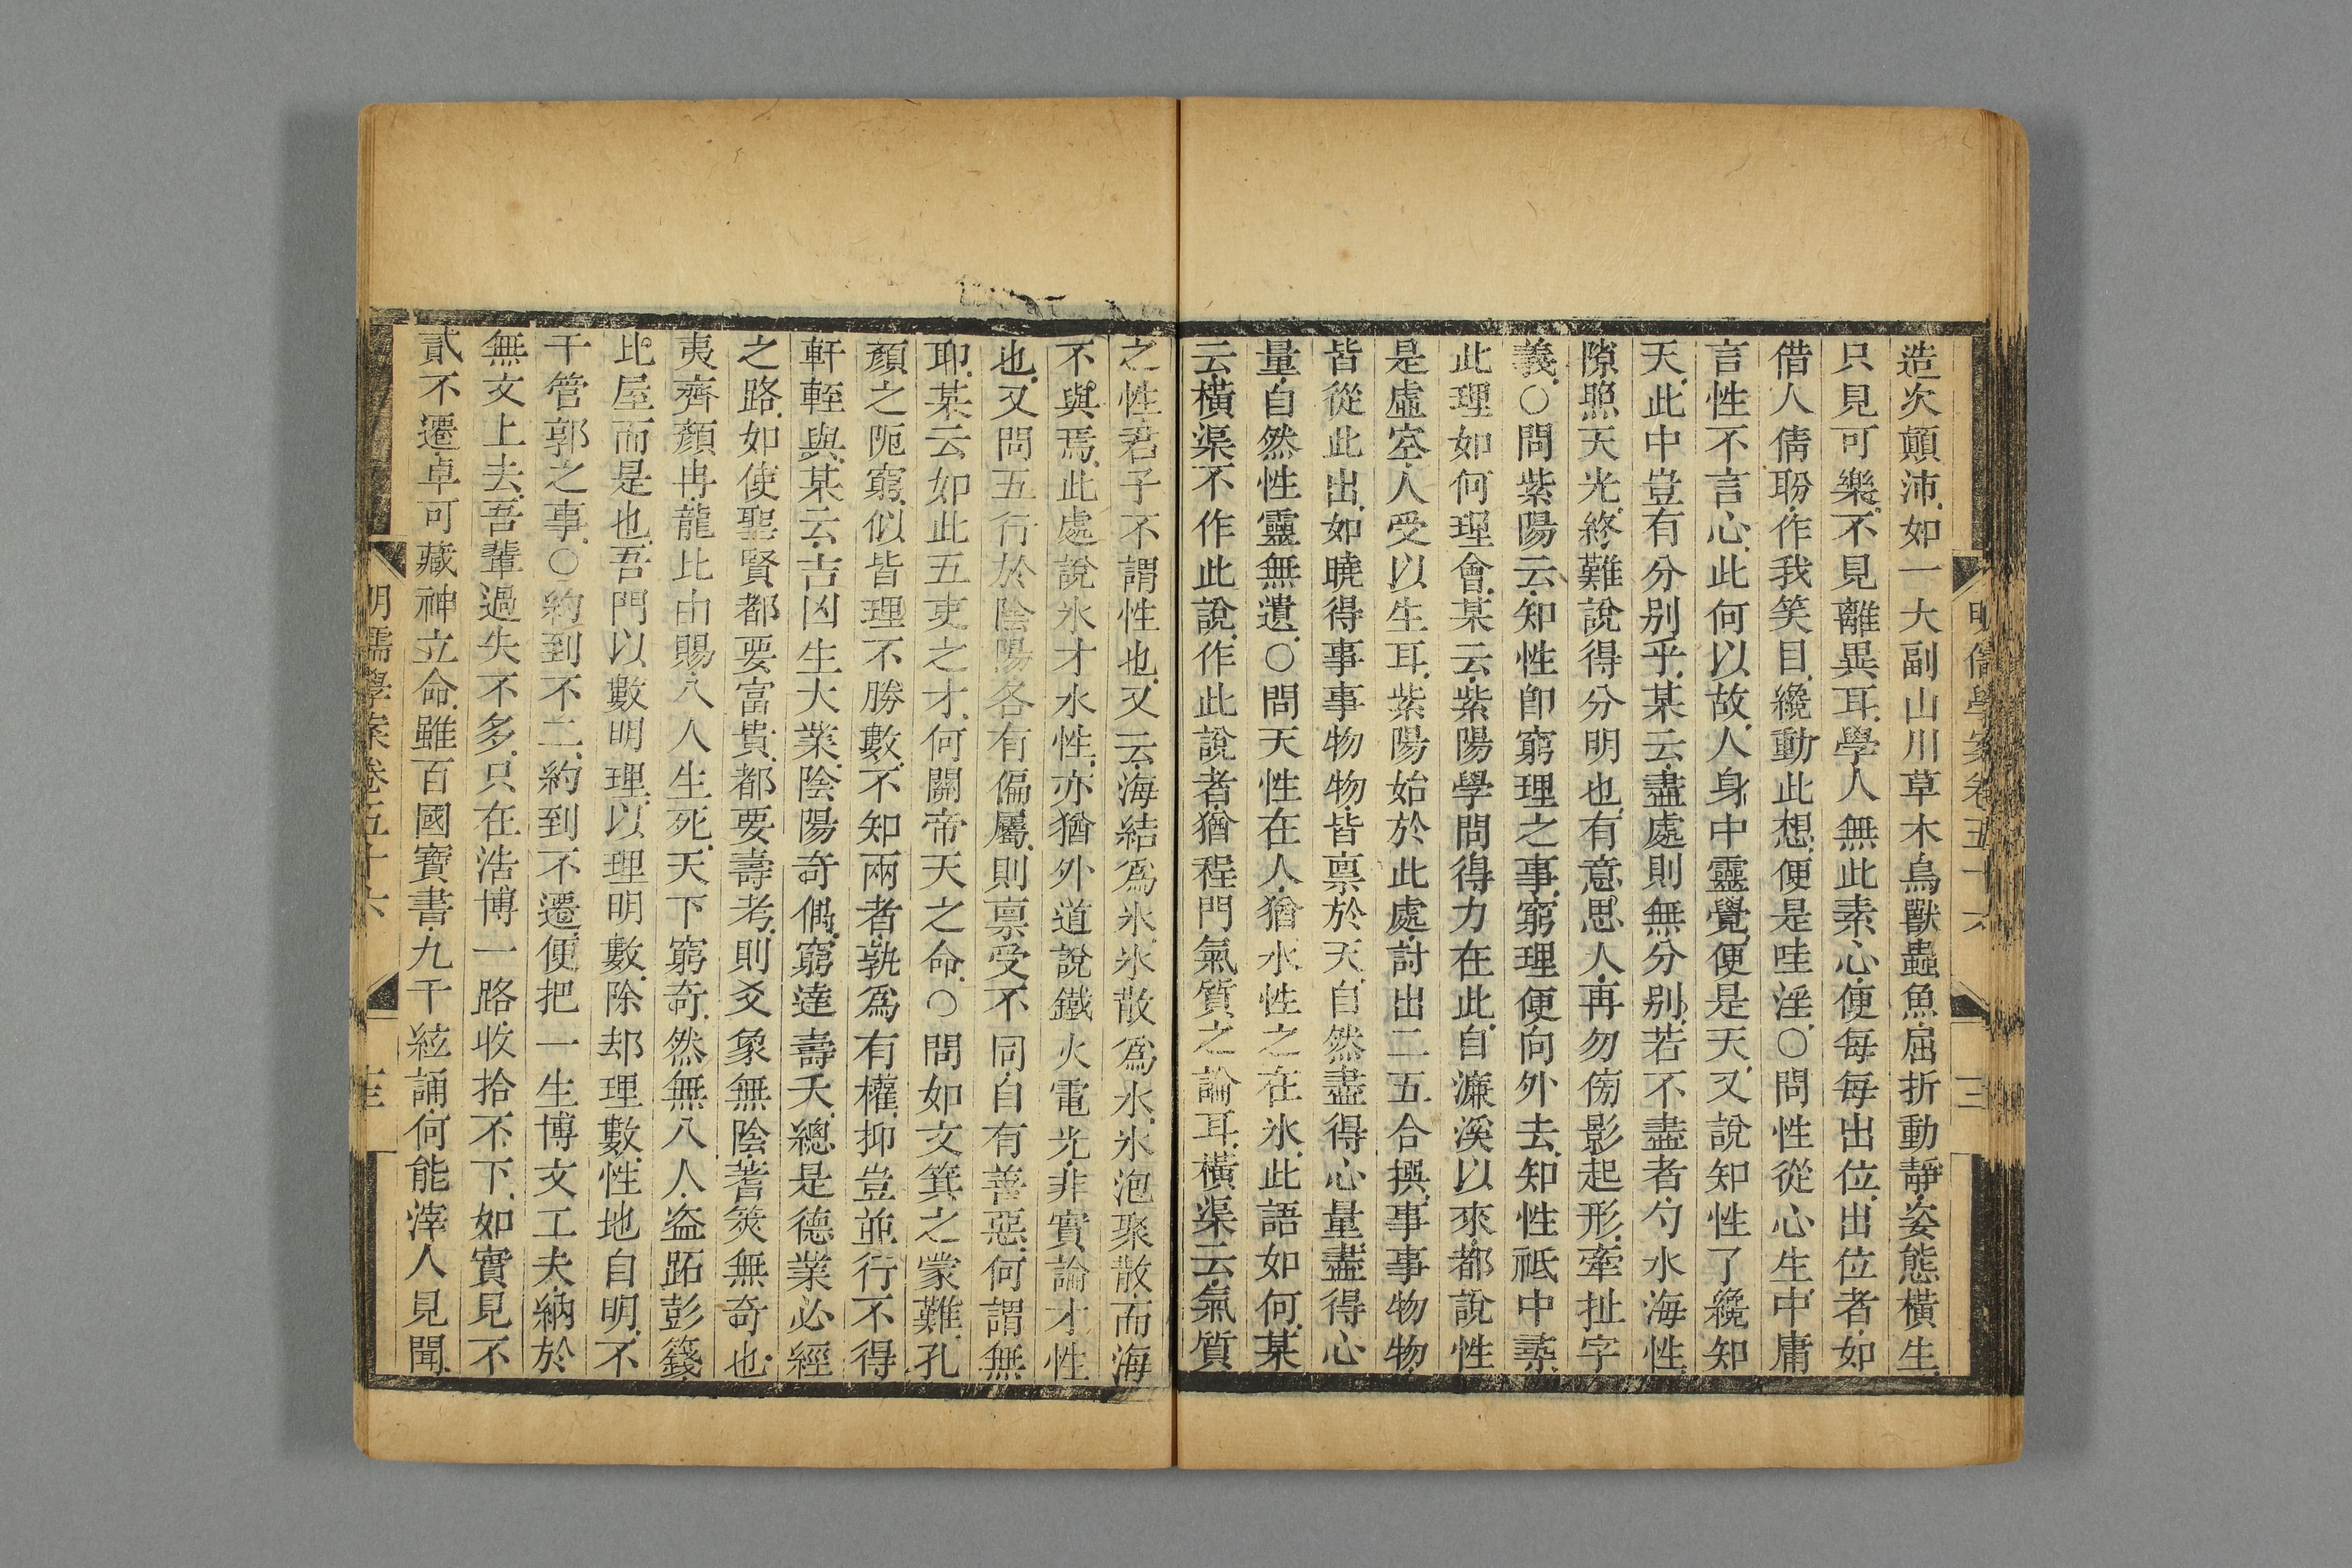 造次顛沛如一大副山川草木鳥獸蟲魚屈折動靜姿態橫生
只見可樂不見離異耳學人無此素心便每每出位出位者如
借人倩盼作我笑目纔動此想便是哇淫○問性從心生中庸
言性不言心此何以故人身中靈覺便是天又說知性了纔知
天此中豈有分别乎某云盡處則無分别若不盡者勺水海性
隙照天光終難說得分明也有意思人再勿傍影起形牽扯字
義○問紫陽云知性卽窮理之事窮理便向外去知性祗中尋
此理如何理會某云紫陽學問得力在此自濂溪以來都說性
是虛空人受以生耳紫陽始於此處討出二五合撰事事物物
皆從此出如曉得事事物物皆禀於天自然盡得心量盡得心
量自然性靈無遺○問天性在人猶水性之在氷此語如何某
云橫渠不作此說作此說者猶程門氣質之論耳橫渠云氣質
之性君子不謂性也又云海結爲氷氷散爲水氷泡聚散而海
不與焉此處說氷才水性亦猶外道說鐵火電光非實論才性
也又問五行於陰陽各有偏屬則禀受不同自有善惡何謂無
耶某云如此五吏之才何關帝天之命○問如文箕之蒙難孔
顏之阨窮似皆理不勝數不知兩者孰爲有權抑豈並行不得
軒輊與某云吉凶生大業陰陽奇偶窮達壽夭總是德業必經
之路如使聖賢都要富貴都要壽考則爻象無陰蓍筴無奇也
夷齊顏冉龍比由賜八人生死天下窮奇然無八人盜跖彭籛
比屋而是也吾門以數明理以理明數除却理數性地自明不
干管郭之事○約到不二約到不遷便把一生博文工夫納於
無文上去吾輩過失不多只在浩博一路收拾不下如實見不
貳不遷卓可藏神立命雖百國寶書九千絃誦何能滓人見聞
明儒學案卷五十六
三